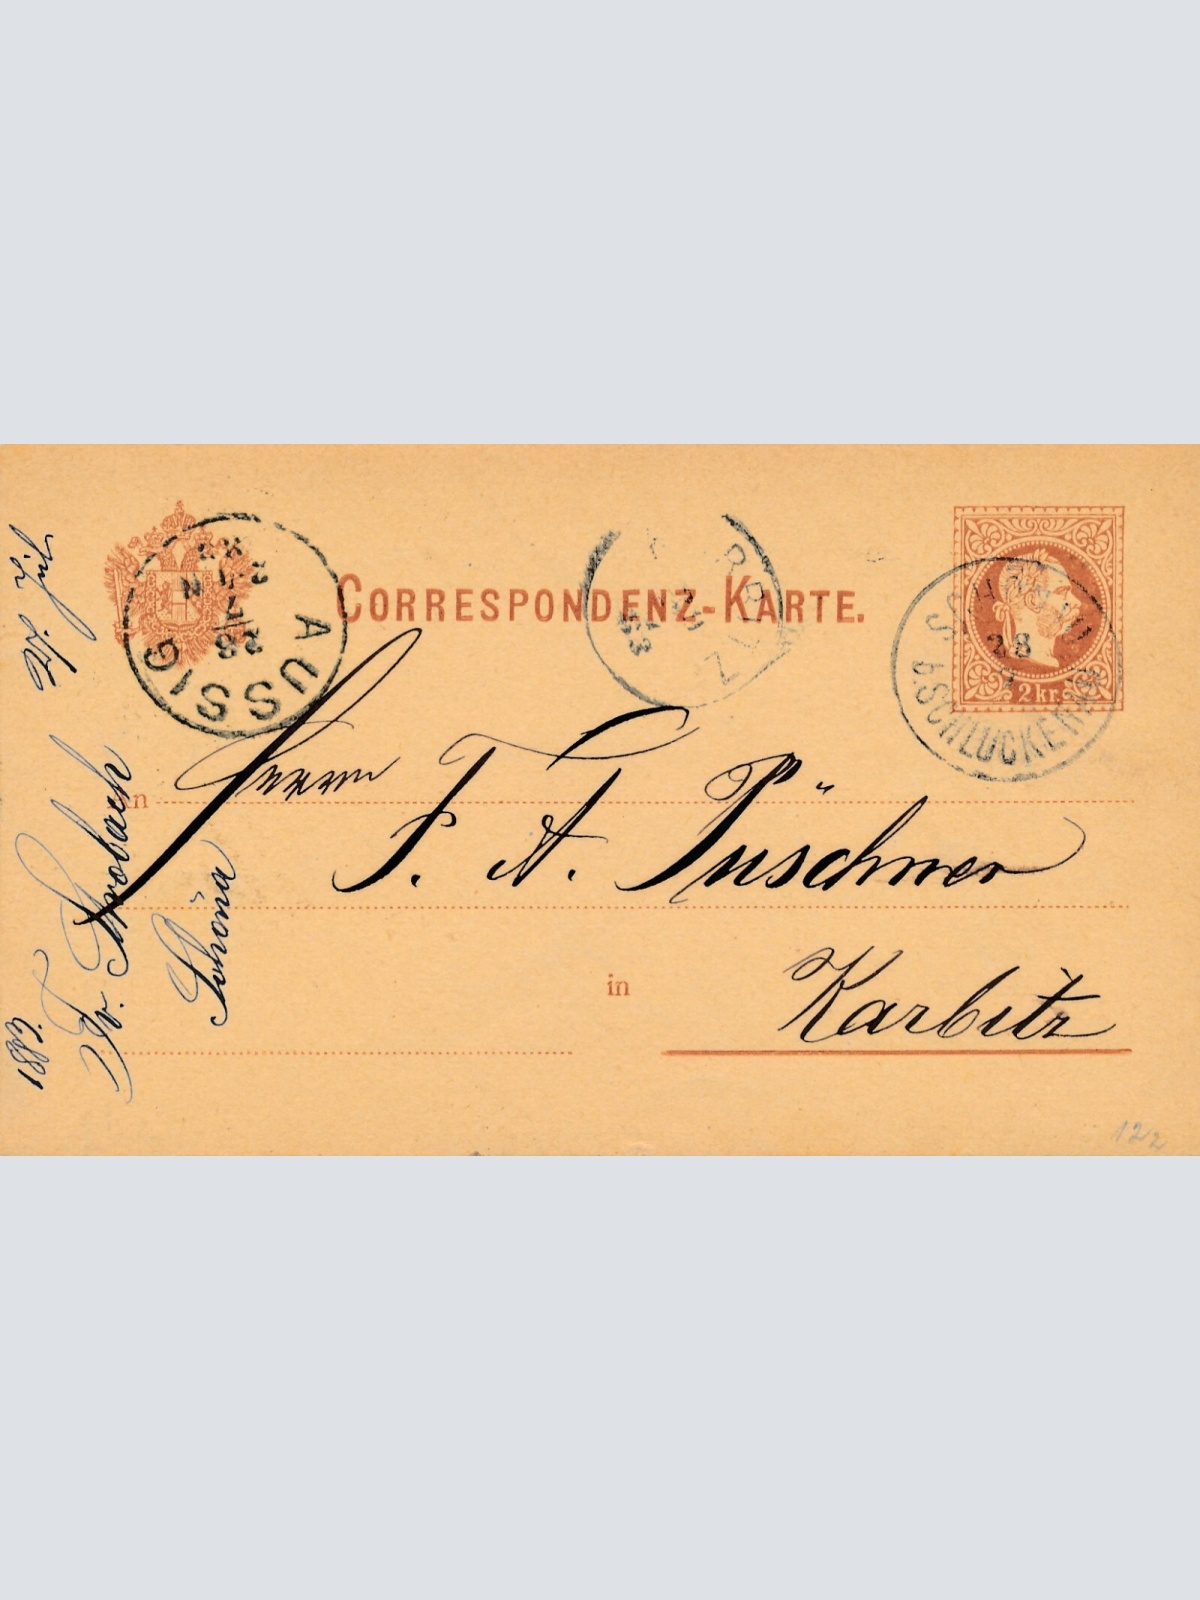 CORRESPONDENZ-KARTE.
AUSSIG
28/7
RBITZ
SCHÖNAU
28
b. SCHLUCKENAU
2 kr.
An
Herrn
F. A. Püschner
in
Karbitz
1883.
Fr. Strobach
Schöna
122